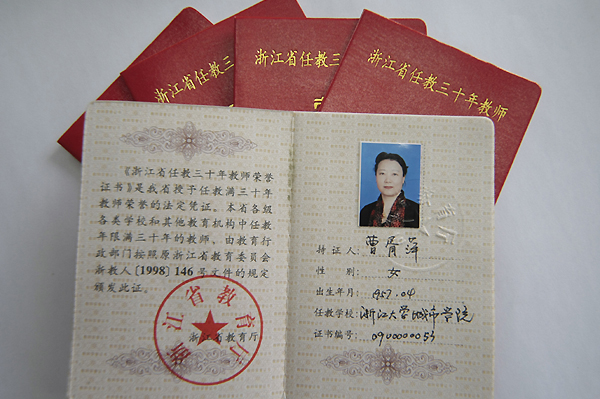 浙江省任教三
浙江省任教三
浙江省任教三十年教师
《浙江省任教三十年教师荣誉
证书》是我省授予任教满三十年
教师荣誉的法定凭证。本省各级
各类学校和其他教育机构中任教
年限满三十年的教师,由教育行
政部门按照原浙江省教育委员会
浙教人[1998]146号文件的规定
颁发此证。
浙江省教育厅
浙江省教育厅
持证人:曹胥萍
性别:女
出生年月:1957.04
任教学校:浙江大学城市学院
证书编号:090000053